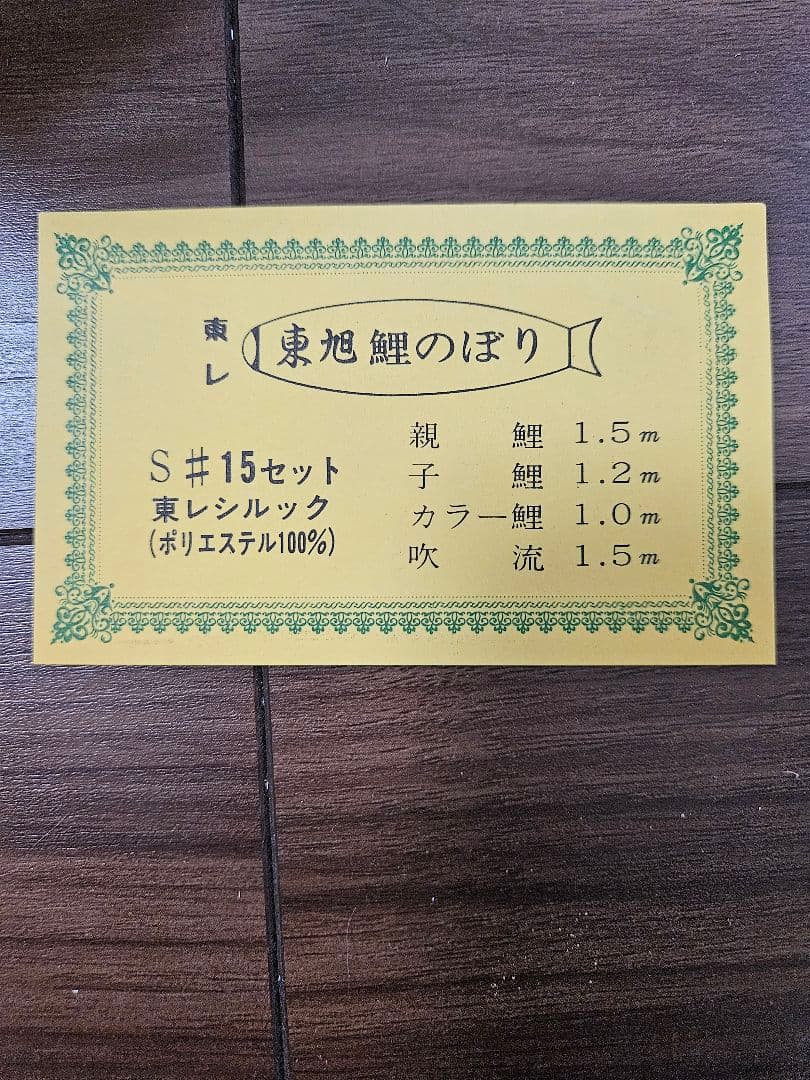 東レ 東旭鯉のぼり
S♯15セット
東レシルック
(ポリエステル100%)
親鯉 1.5m
子鯉 1.2m
カラー鯉 1.0m
吹流 1.5m